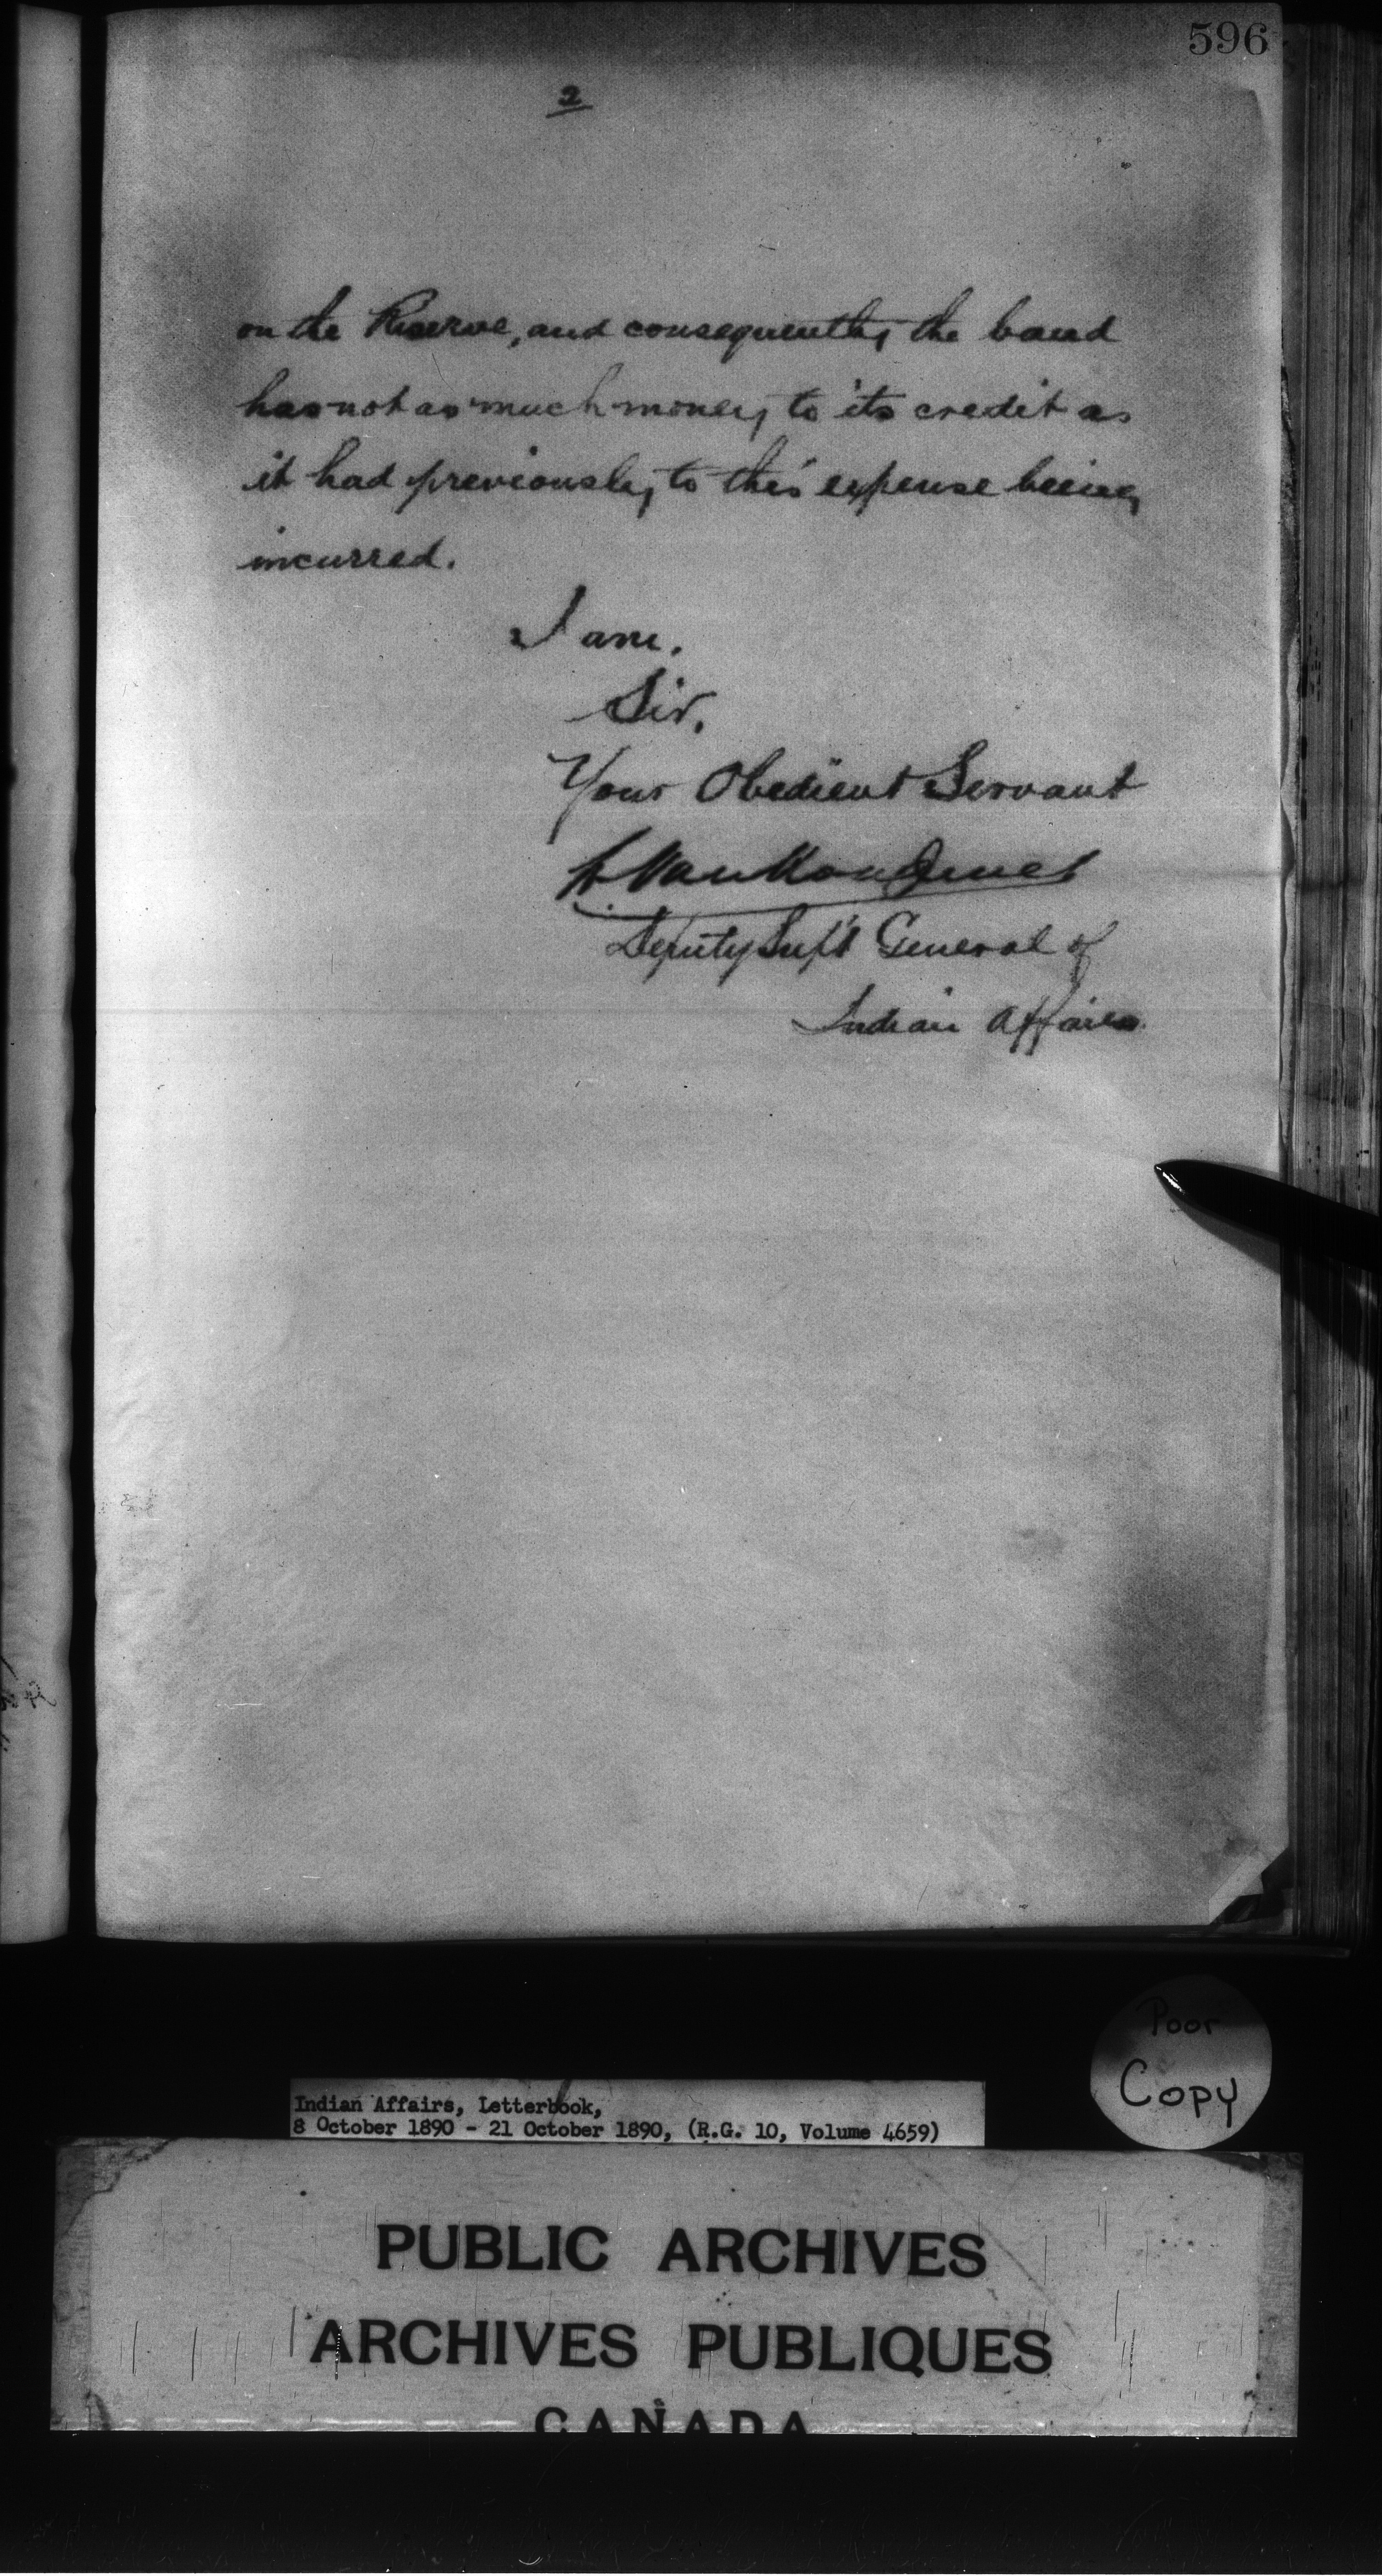 596
2
on the Reserve, and consequently the band
has not as much money to its credit as
it had previously to this expense being
incurred.
I am,
Sir,
Your Obedient Servant
L. VanKoughnet
Deputy Supt General of
Indian Affairs.
Poor
Copy
Indian Affairs, Letterbook,
8 October 1890 - 21 October 1890, (R.G. 10, Volume 4659)
PUBLIC ARCHIVES
ARCHIVES PUBLIQUES
CANADA